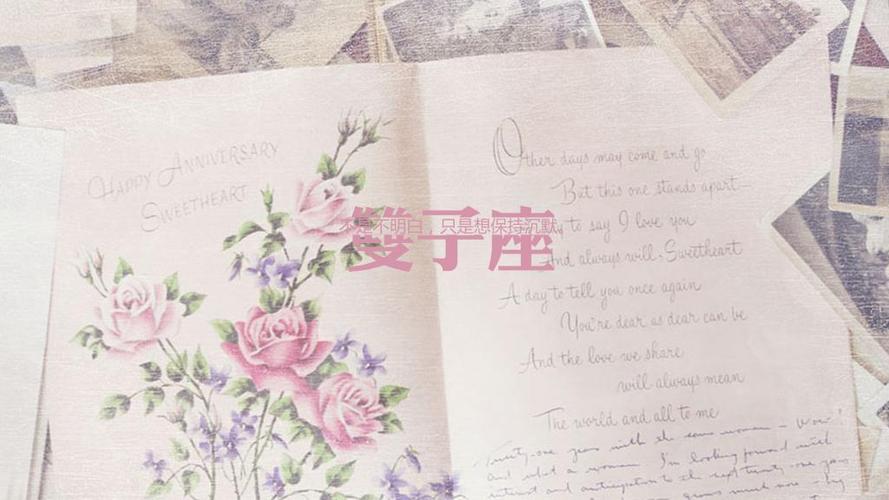 HAPPY ANNIVERSARY
SWEETHEART
雙子座
不是不明白，只是想保持沉默
Other days may come and go
But this one stands apart—
to say I love you
And always will, Sweetheart
A day to tell you once again
You're dear as dear can be
And the love we share
will always mean
The world and all to me
Twenty-one years with the same woman - Wow!
and what a woman. I'm looking forward with
and anticipation to the next twenty-one years